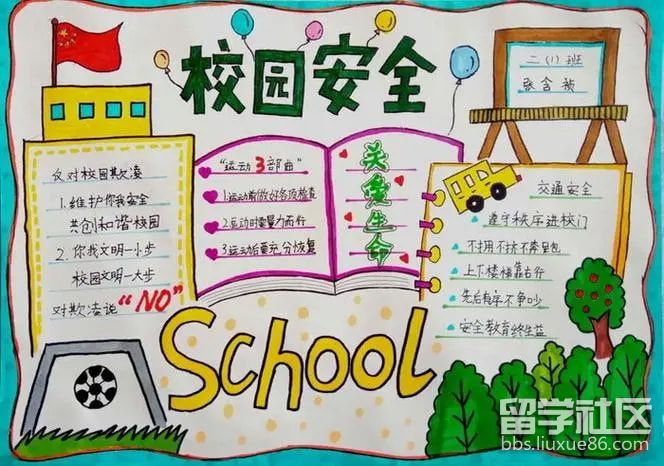 校园安全
二(1)班
张含祯
反对校园欺凌
1.维护你我安全
共创和谐校园
2.你我文明一小步
校园文明一大步
对欺凌说"NO"
"运动3部曲"
1.运动前做好各项检查
2.互动时量力而行
3.运动后量充分恢复
关爱生命
交通安全
遵守秩序进校门
不拥不挤不背包
上下楼梯靠右行
先后有序不争吵
安全教育终生益
School
留学社区
bbs.liuxue86.com